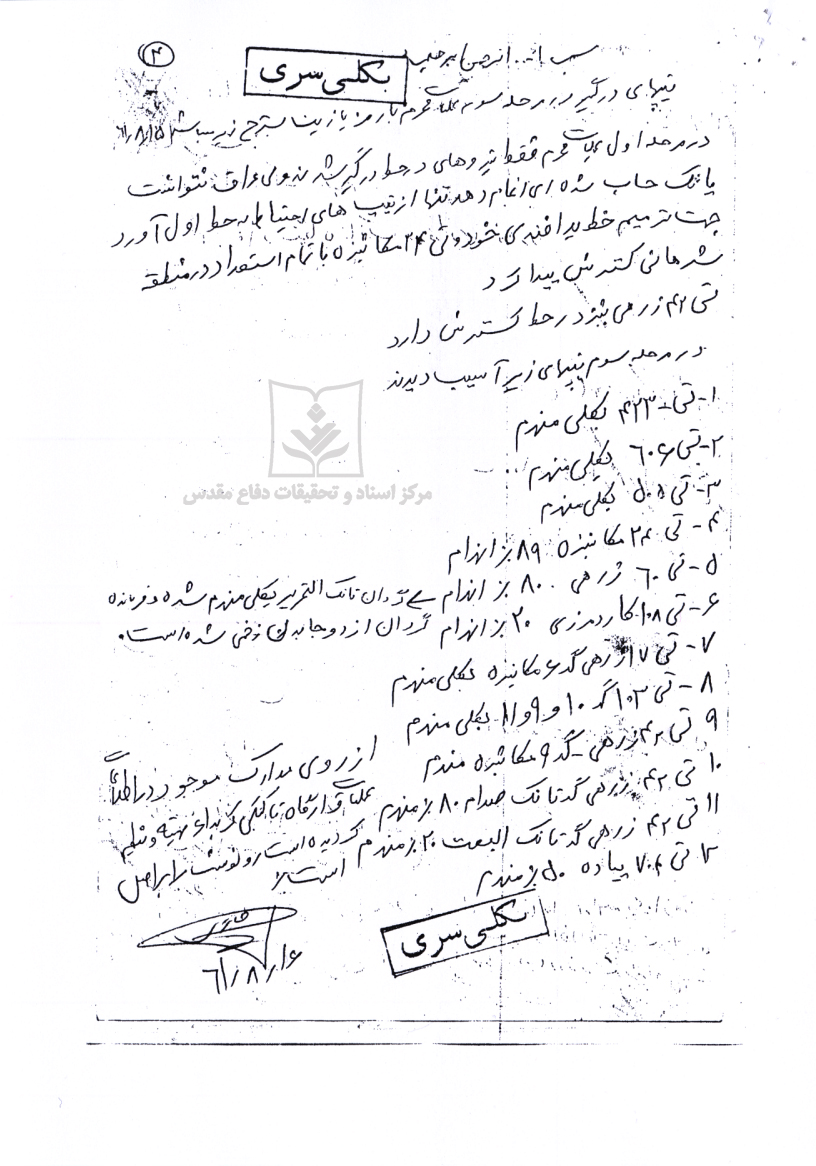 ۴
بسم الله الرحمن الرحیم
بکلی سری
تیپهای درگیر در مرحله سوم عملیات محرم با رمز یا زینب بشرح زیر میباشد ۶۱/۸/۱۵
در مرحله اول عملیات محرم فقط نیروهای در خط درگیر شدند ولی عراق نتوانست
پاتک حساب شده ای انجام دهد تنها از تیپ های احتیاط به خط اول آورد
جهت ترمیم خط پدافندی خود و تی ۲۴ مکانیزه با تمام استعداد در منطقه
شرهانی گسترش پیدا کرد
تی ۴۲ زرهی نیز در خط گسترش دارد
در مرحله سوم تیپهای زیر آسیب دیدند
۱- تی ۴۲۳ بکلی منهدم
۲- تی ۶۰۶ بکلی منهدم
۳- تی ۵۰۱ بکلی منهدم
۴- تی ۲۴ مکانیزه ۸۹٪ انهدام
۵- تی ۶۰ زرهی ۸۰٪ انهدام گردان تانک التحریر بکلی منهدم شده و فرمانده
۶- تی ۱۰۸ گارد مرزی ۲۰٪ انهدام گردان از دو جا بدن زخمی شده است.
۷- تی ۱۷ زرهی گد ۶ مکانیزه بکلی منهدم
۸- تی ۱۰۳ گد ۱۰ و ۹ و ۱۱ بکلی منهدم
۹ تی ۴۲ زرهی - گد ۹ مکانیزه منهدم
۱۰ تی ۴۲ زرهی گد تانک صدام ۸۰٪ منهدم
۱۱ تی ۴۲ زرهی گد تانک البعث ۲۰٪ منهدم
۱۲ تی ۷۰۴ پیاده ۵۰٪ منهدم
از روی مدارک موجود در اطلاعات
عملیات قرارگاه تاکتیکی کربلا تهیه و تنظیم
گردیده است رونوشت برابر اصل
است
۶۱/۸/۱۶
بکلی سری
مرکز اسناد و تحقیقات دفاع مقدس